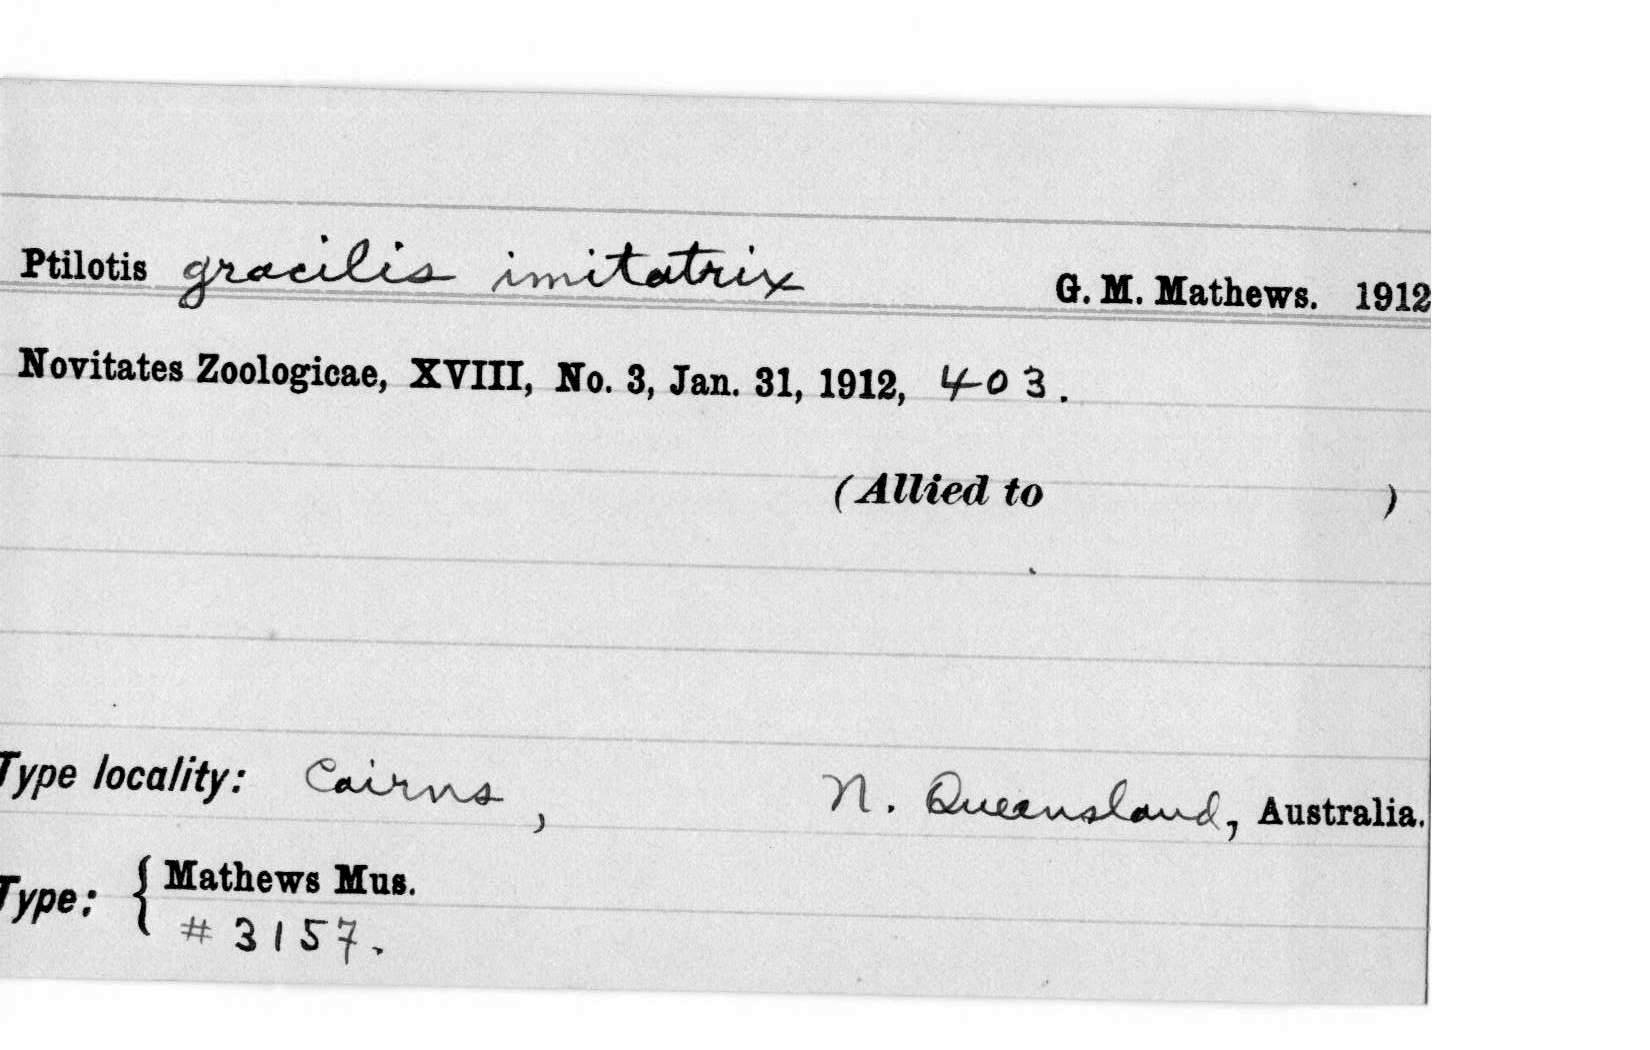 Ptilotis gracilis imitatrix G. M. Mathews. 1912
Novitates Zoologicae, XVIII, No. 3, Jan. 31, 1912, 403.
(Allied to )
Type locality: Cairns, N. Queensland, Australia.
Type: { Mathews Mus.
# 3157.